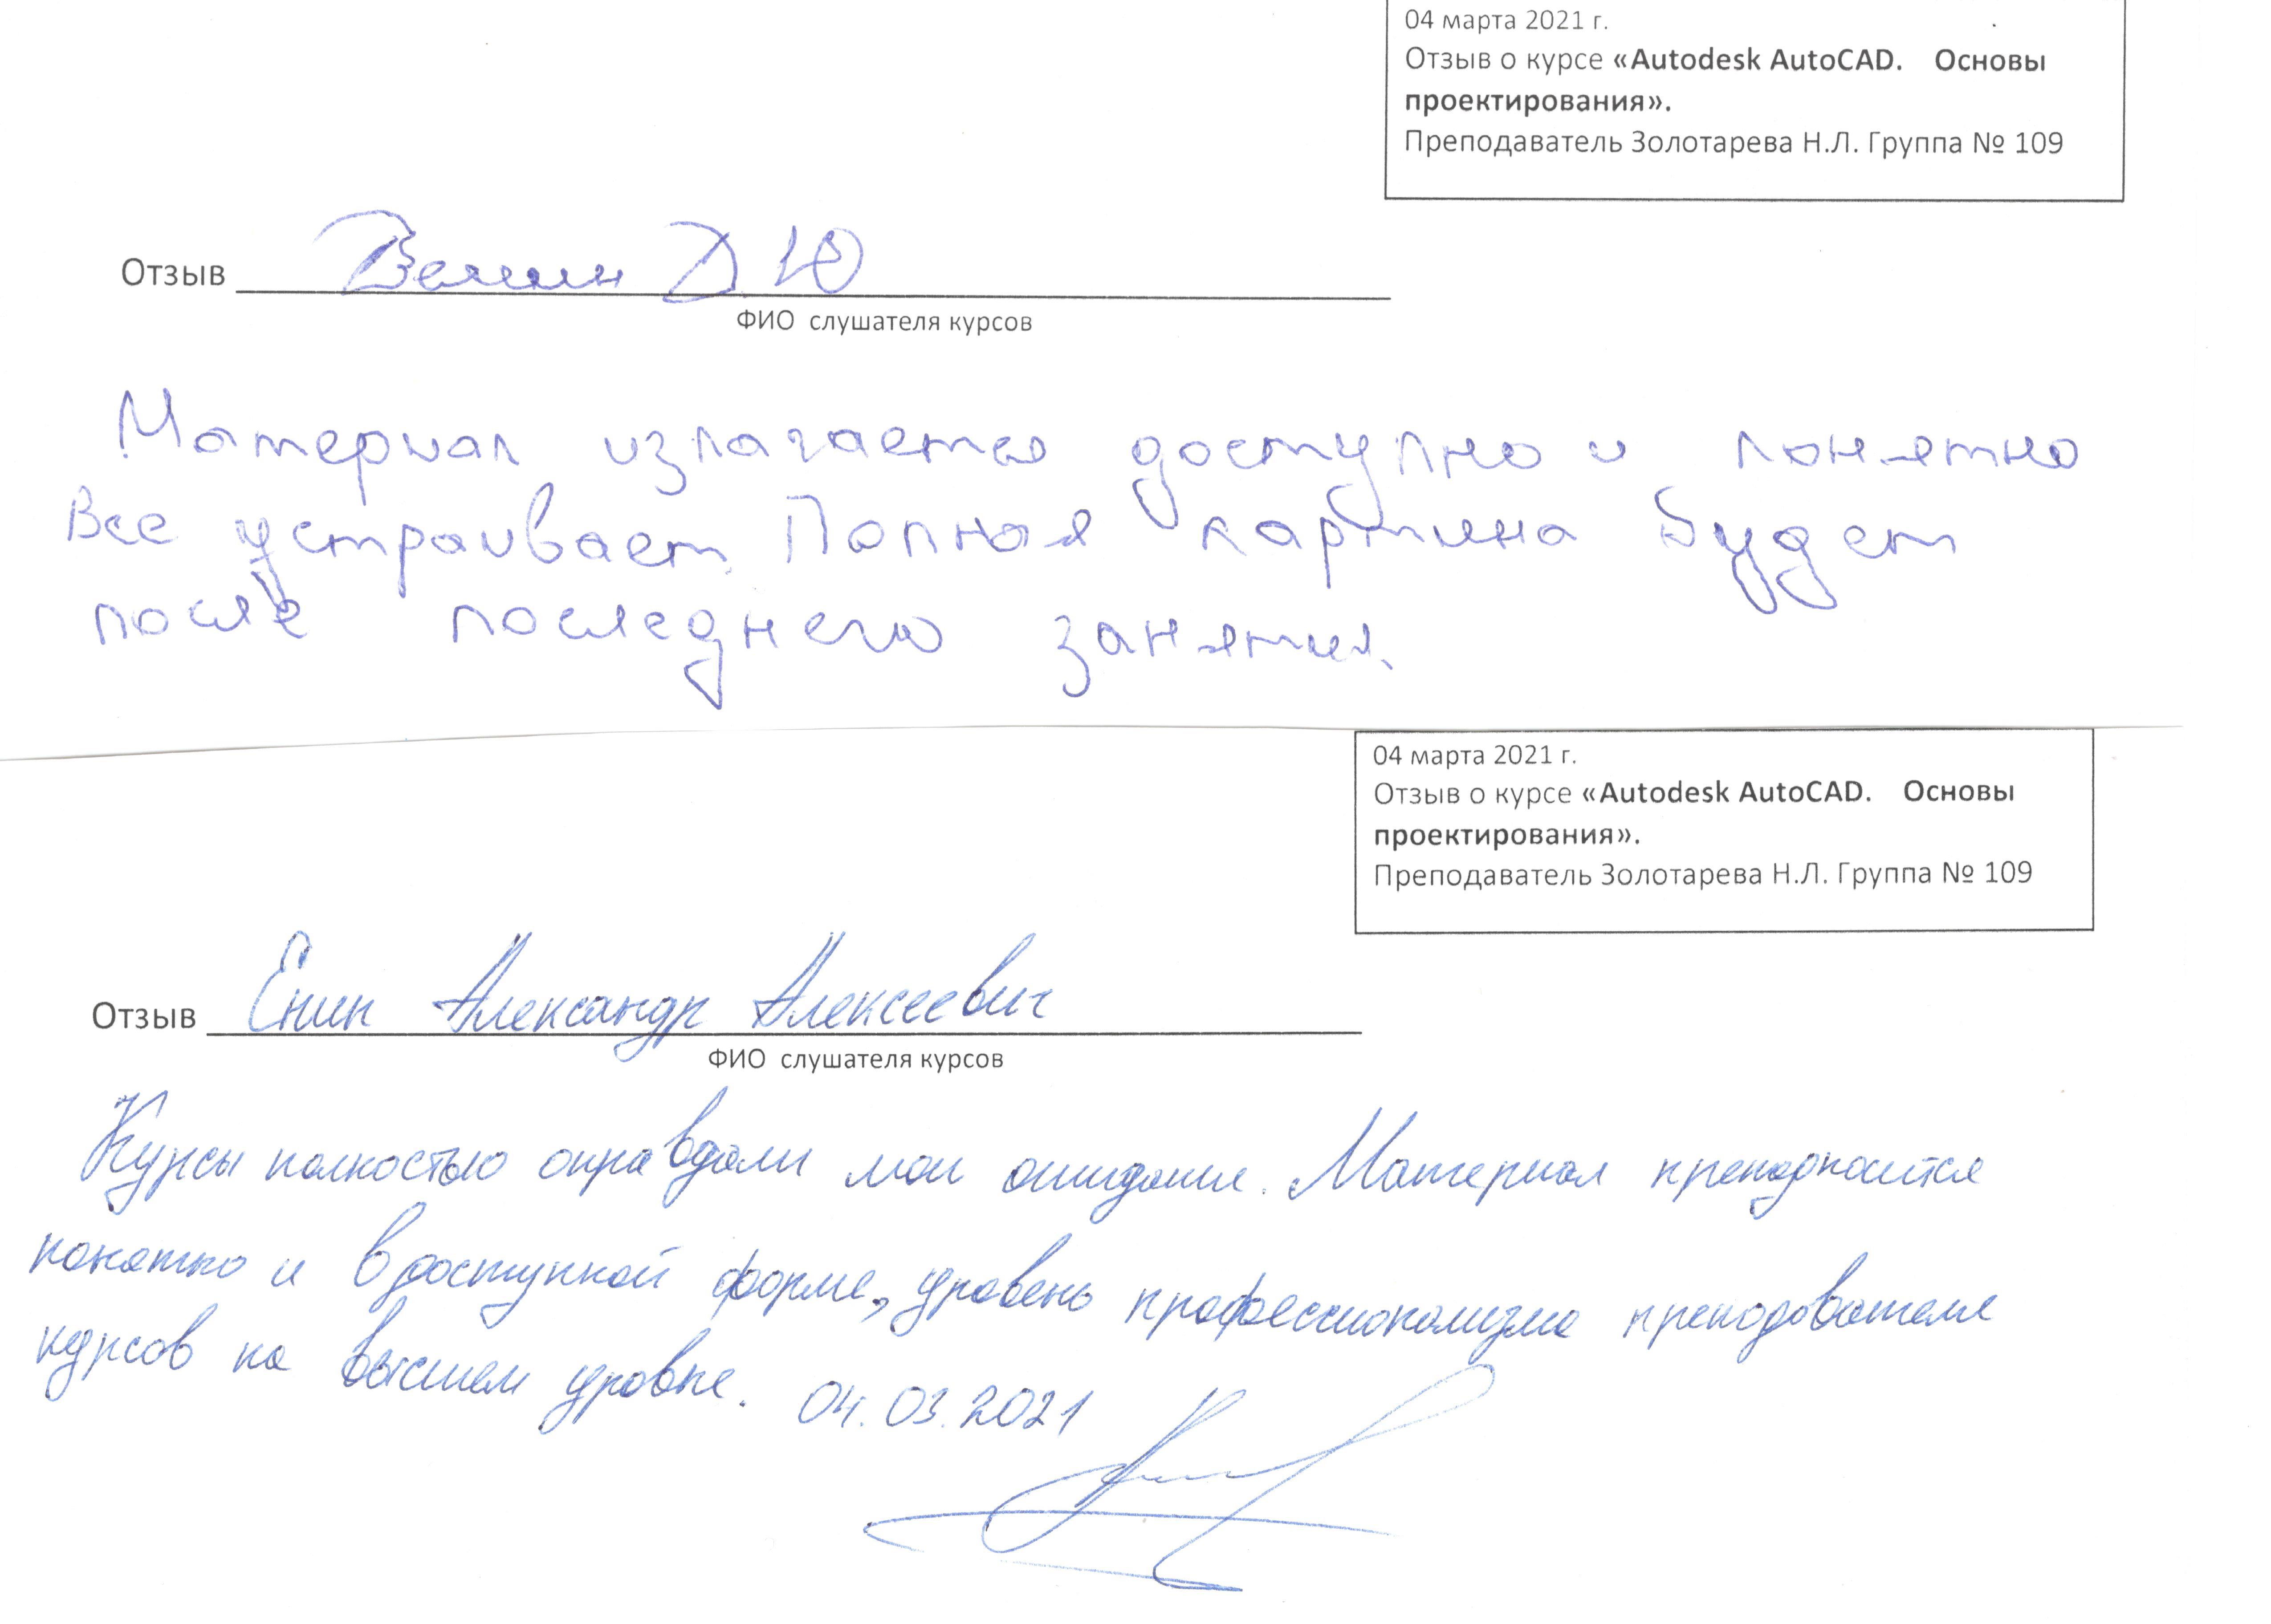 04 марта 2021 г.
Отзыв о курсе «Autodesk AutoCAD. Основы
проектирования».
Преподаватель Золотарева Н.Л. Группа № 109
Отзыв Д.Ю
ФИО слушателя курсов
Материал излагается доступно и понятно
Все устраивает. Полная картина будет
после последнего занятия.
04 марта 2021 г.
Отзыв о курсе «Autodesk AutoCAD. Основы
проектирования».
Преподаватель Золотарева Н.Л. Группа № 109
Отзыв Енин Александр Алексеевич
ФИО слушателя курсов
Курсы полностью оправдали мои ожидание. Материал преподносится
понятно и в доступной форме, уровень профессионализма преподователя
курсов на высшем уровне. 04.03.2021